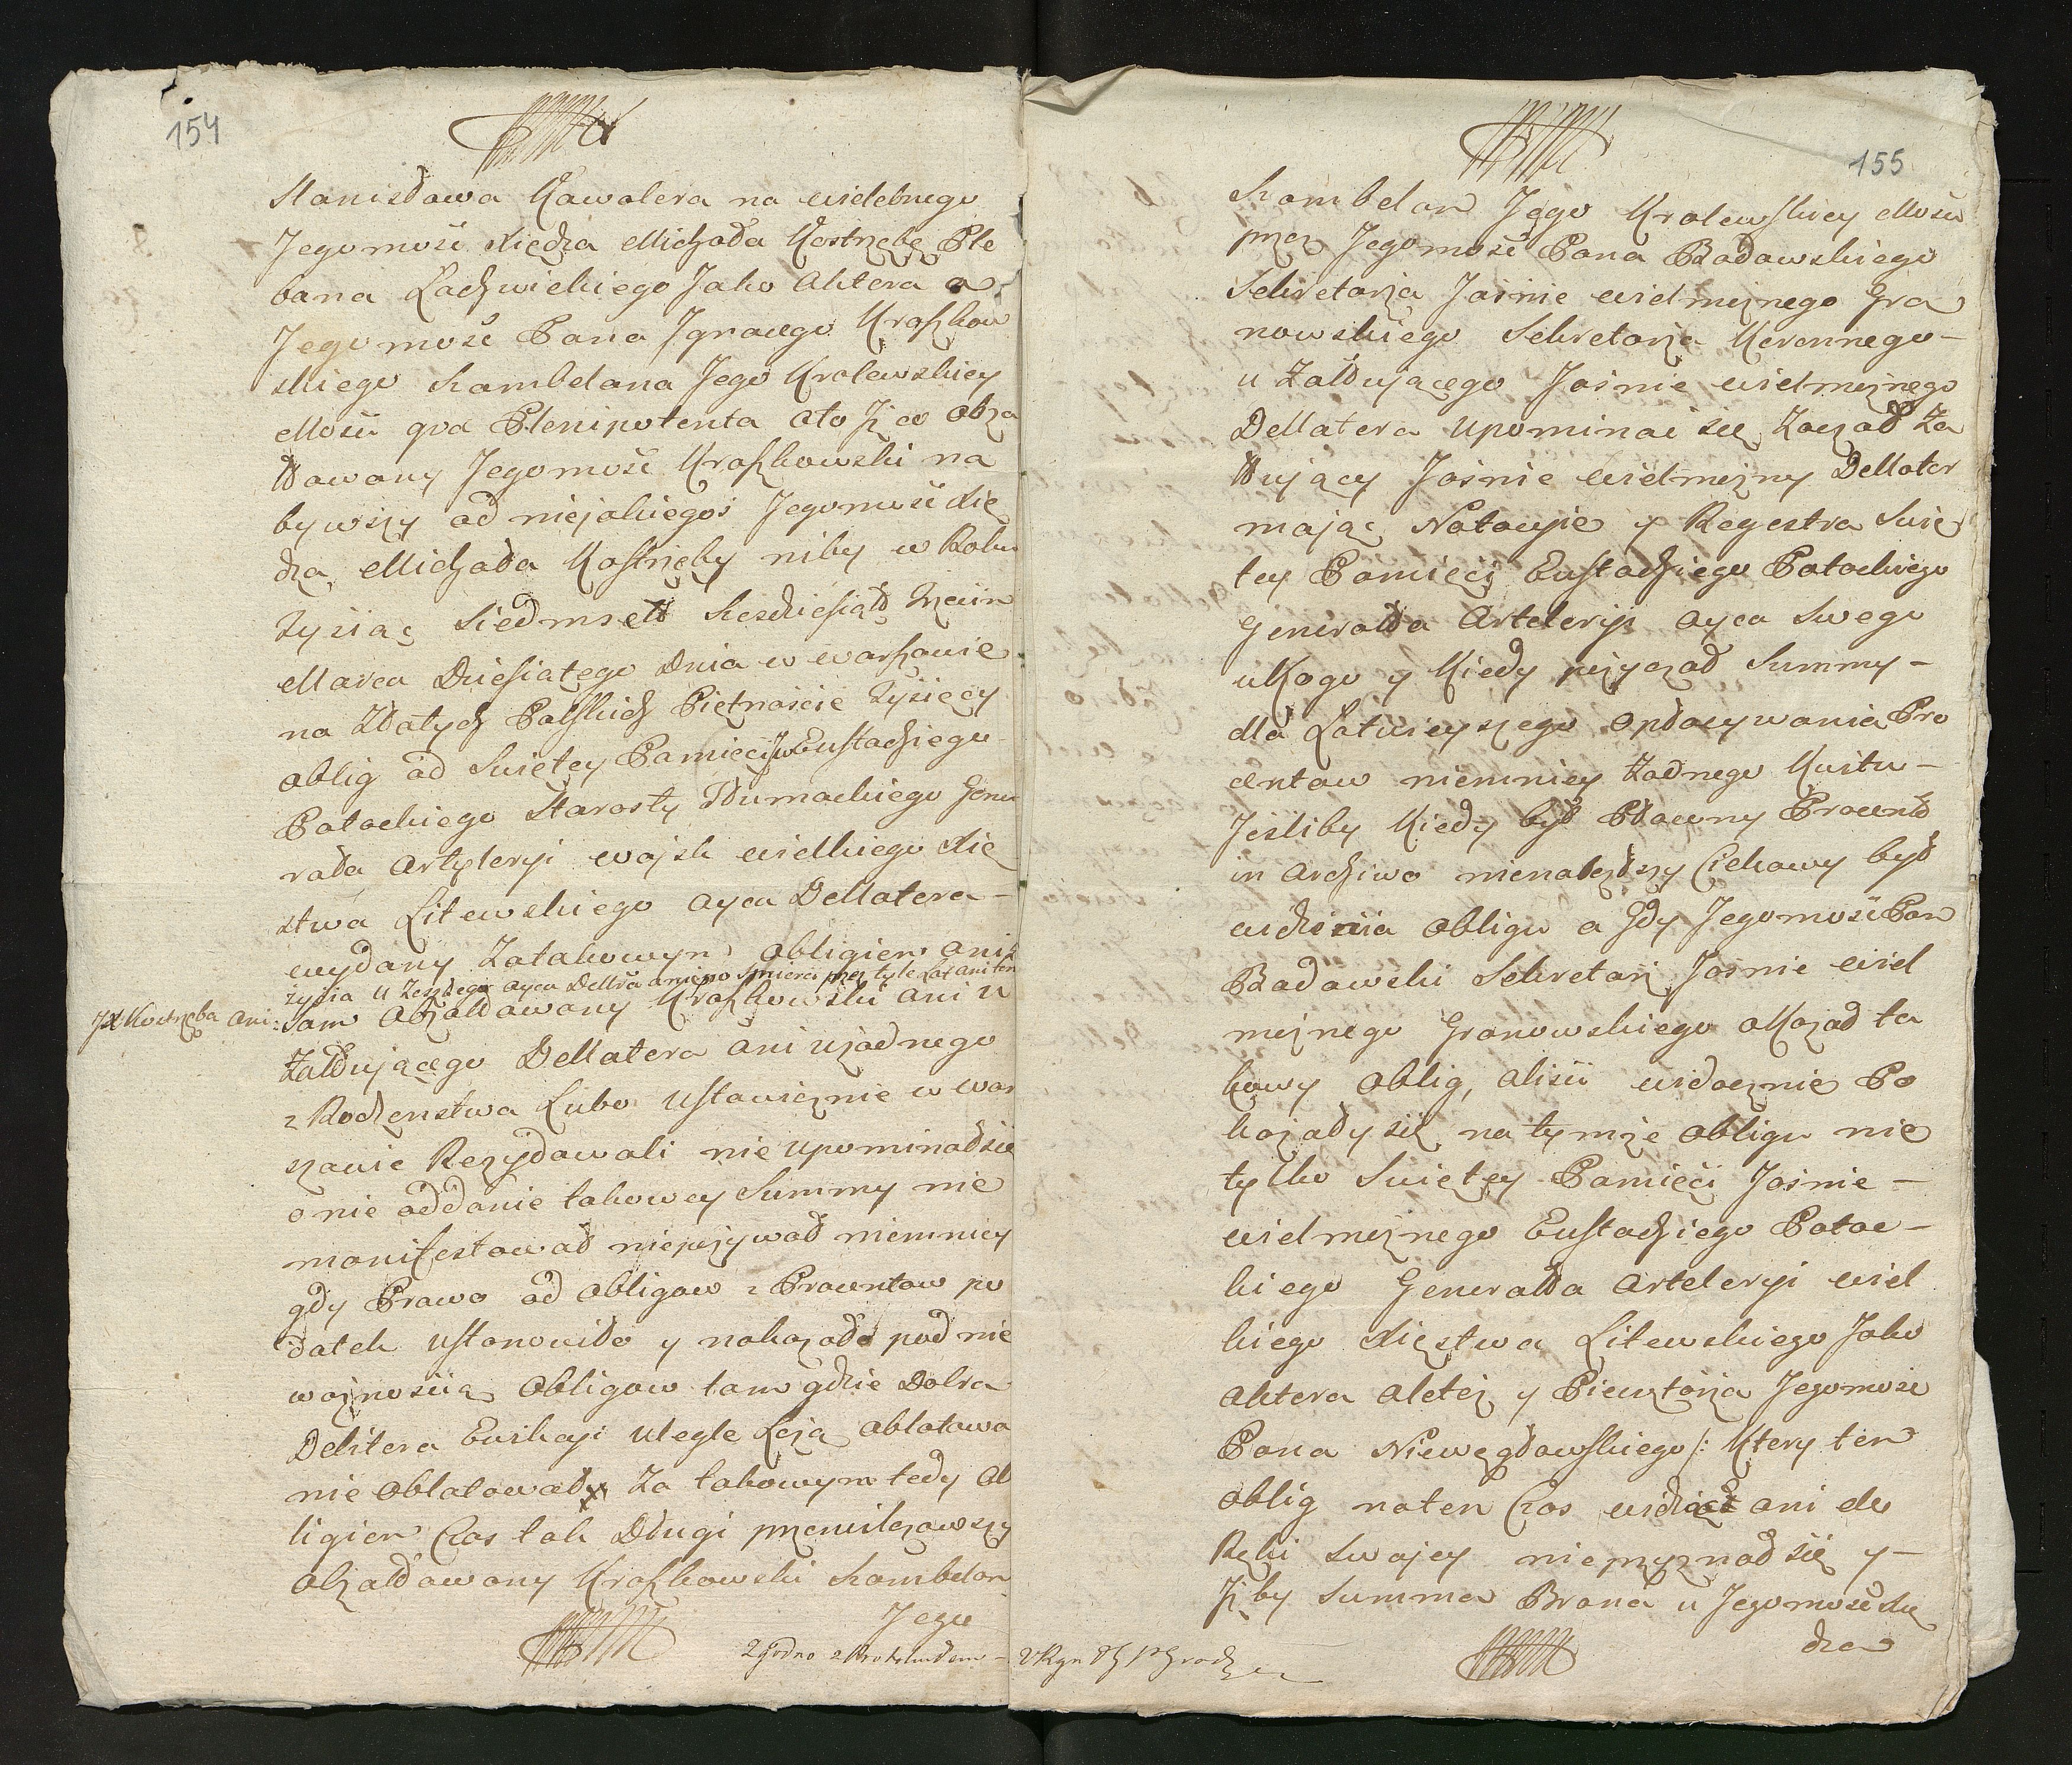 154
Stanisława Kawalera na wielebnego
Jegomość Xiędza Michała Kostrzębę Ple
bana Zadzwickiego Jako Aktora a
Jegomość Pana Jgnacego Kraszkow
skiego Szambelana Jego Krolewskiey
Mości qva Plenipotenta Oto Jż w Obża
łłowany Jegomość Kraszkowski na
bywszy od niejakiegoś Jegomość Xię
dza Michała Kostrzęby niby w Roku
Tysiąc Siedmset Szesdziesiąt Trzecim
Marca Dziesiątego Dnia w warszawie
na Złotych Polskich Piętnaście Tysięcy
oblig od Swiętey Pamięci Jw Eustachiego
Potockiego Starosty Tłumackiego Gene
rała Artyleryi wojsk wielkiego Xię
stwa Litewskiego Oyca Dellatora
wydany Zatakowym obligiem ani
życia u Zeszłego Oyca Dellra ani po smierci przez tyle Lat ani ten
JX Kostrzęba ani: sam Obżałłowany Kraszkowski ani u
Żałłującego Dellatora ani użadnego
z Rodzenstwa Lubo Ustawicznie w war
szawie Rezydowali nie upominał się
o nie oddanie takowey Summy nie
manifestował niepozywał niemniey
gdy Prawo od Obligow z Prowentow po
datek Ustanowiło y nakazało pod nie
ważnoscią Obligow tam gdzie Dobra
Debitora Ewikcyi Uległe Leżą oblatowa
nie oblatował Za takowym tedy Ob
ligiem Czas tak Długi przemilczawszy
Obżałłowany Kraszkowski Szambelan
Jego
155
Szambelan Jego Krolewskiey Mości
przez Jegomość Pana Badowskiego
Sekretarza Jaśnie wielmożnego Gra
nowskiego Sekretarza Koronnego
u Żałłującego Jaśnie wielmożnego
Dellatora upominać się Zaczął Ża
łłujący Jaśnie wielmożny Dellator
mając Notacyie y Regestra Swię
tey Pamięci Eustachiego Potockiego
Generałła Arteleryi Oyca Swego
u Kogo y Kiedy pożyczał Summy
dla Łatwieyszego Opłacywania Pro
centow niemniey Żadnego Kwitu
Jeśliby Kiedy był Płacony Procent
in Archivo nienalazłszy Ciekawy był
widzenia Obligu a Gdy Jegomość Pan
Badowski Sekretarz Jasnie wiel
możnego Granowskiego okazał ta
kowy Oblig, aliści widocznie Po
kazały się na tymże Obligu nie
tylko Swiętey Pamięci Jaśnie
wielmożnego Eustachiego Potoc
kiego Generałła Arteleryi wiel
kiego Xięstwa Litewskiego Jako
Aktora aleteż y Pieczętarza Jegomość
Pana Niewęgłowskiego /: Ktory ten
oblig naten Czas widząc ani do
Ręki swojey nieprzyznał się y
Jżby Summa Brana u Jegomość Xię
dza